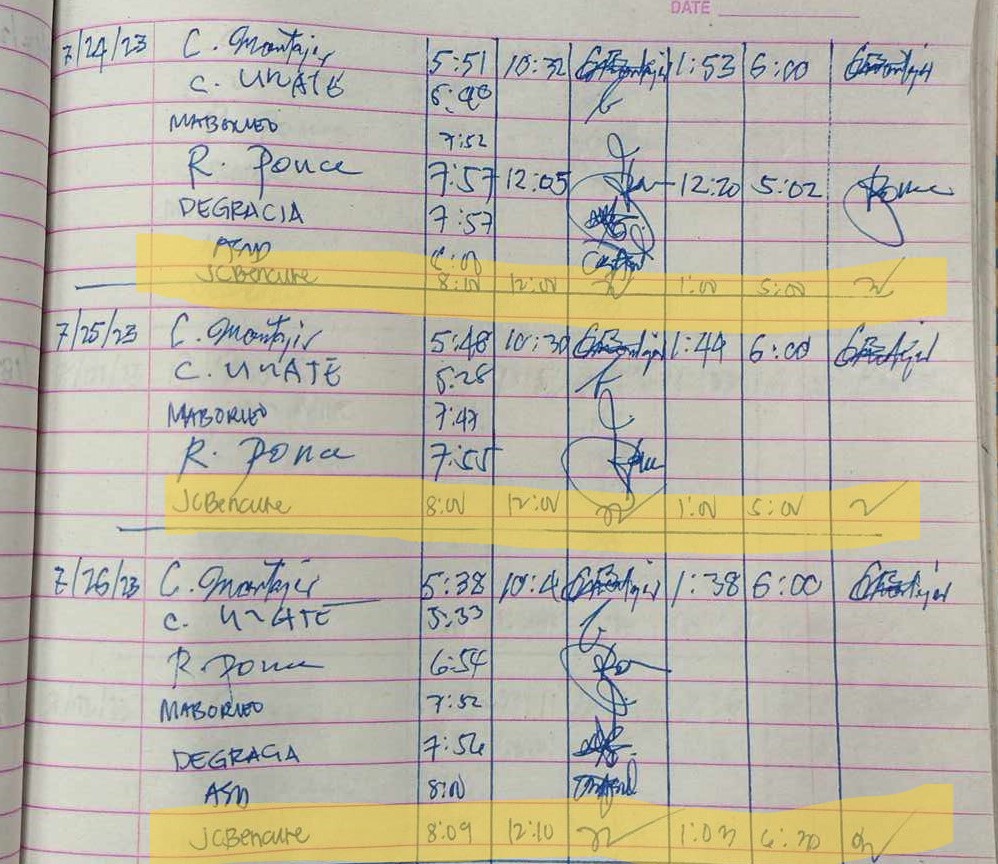 DATE
7/24/23 C. Montajes 5:51 10:32 1:53 6:00
C. UNATE 5:48
MABORRED 7:52
R. Ponce 7:57 12:05 12:20 5:02 Ponce
DEGRACIA 7:57
ASD 8:00
JCBencure 8:00 12:00 1:00 5:00
7/25/23 C. Montajes 5:48 10:30 1:44 6:00
C. UNATE 5:28
MABORRED 7:47
R. Ponce 7:55
JCBencure 8:00 12:00 1:00 5:00
7/26/23 C. Montajes 5:38 10:4 1:38 6:00
C. UNATE 5:33
R. Ponce 6:54
MABORRED 7:52
DEGRACIA 7:56
ASD 8:00
JCBencure 8:09 12:10 1:03 6:30